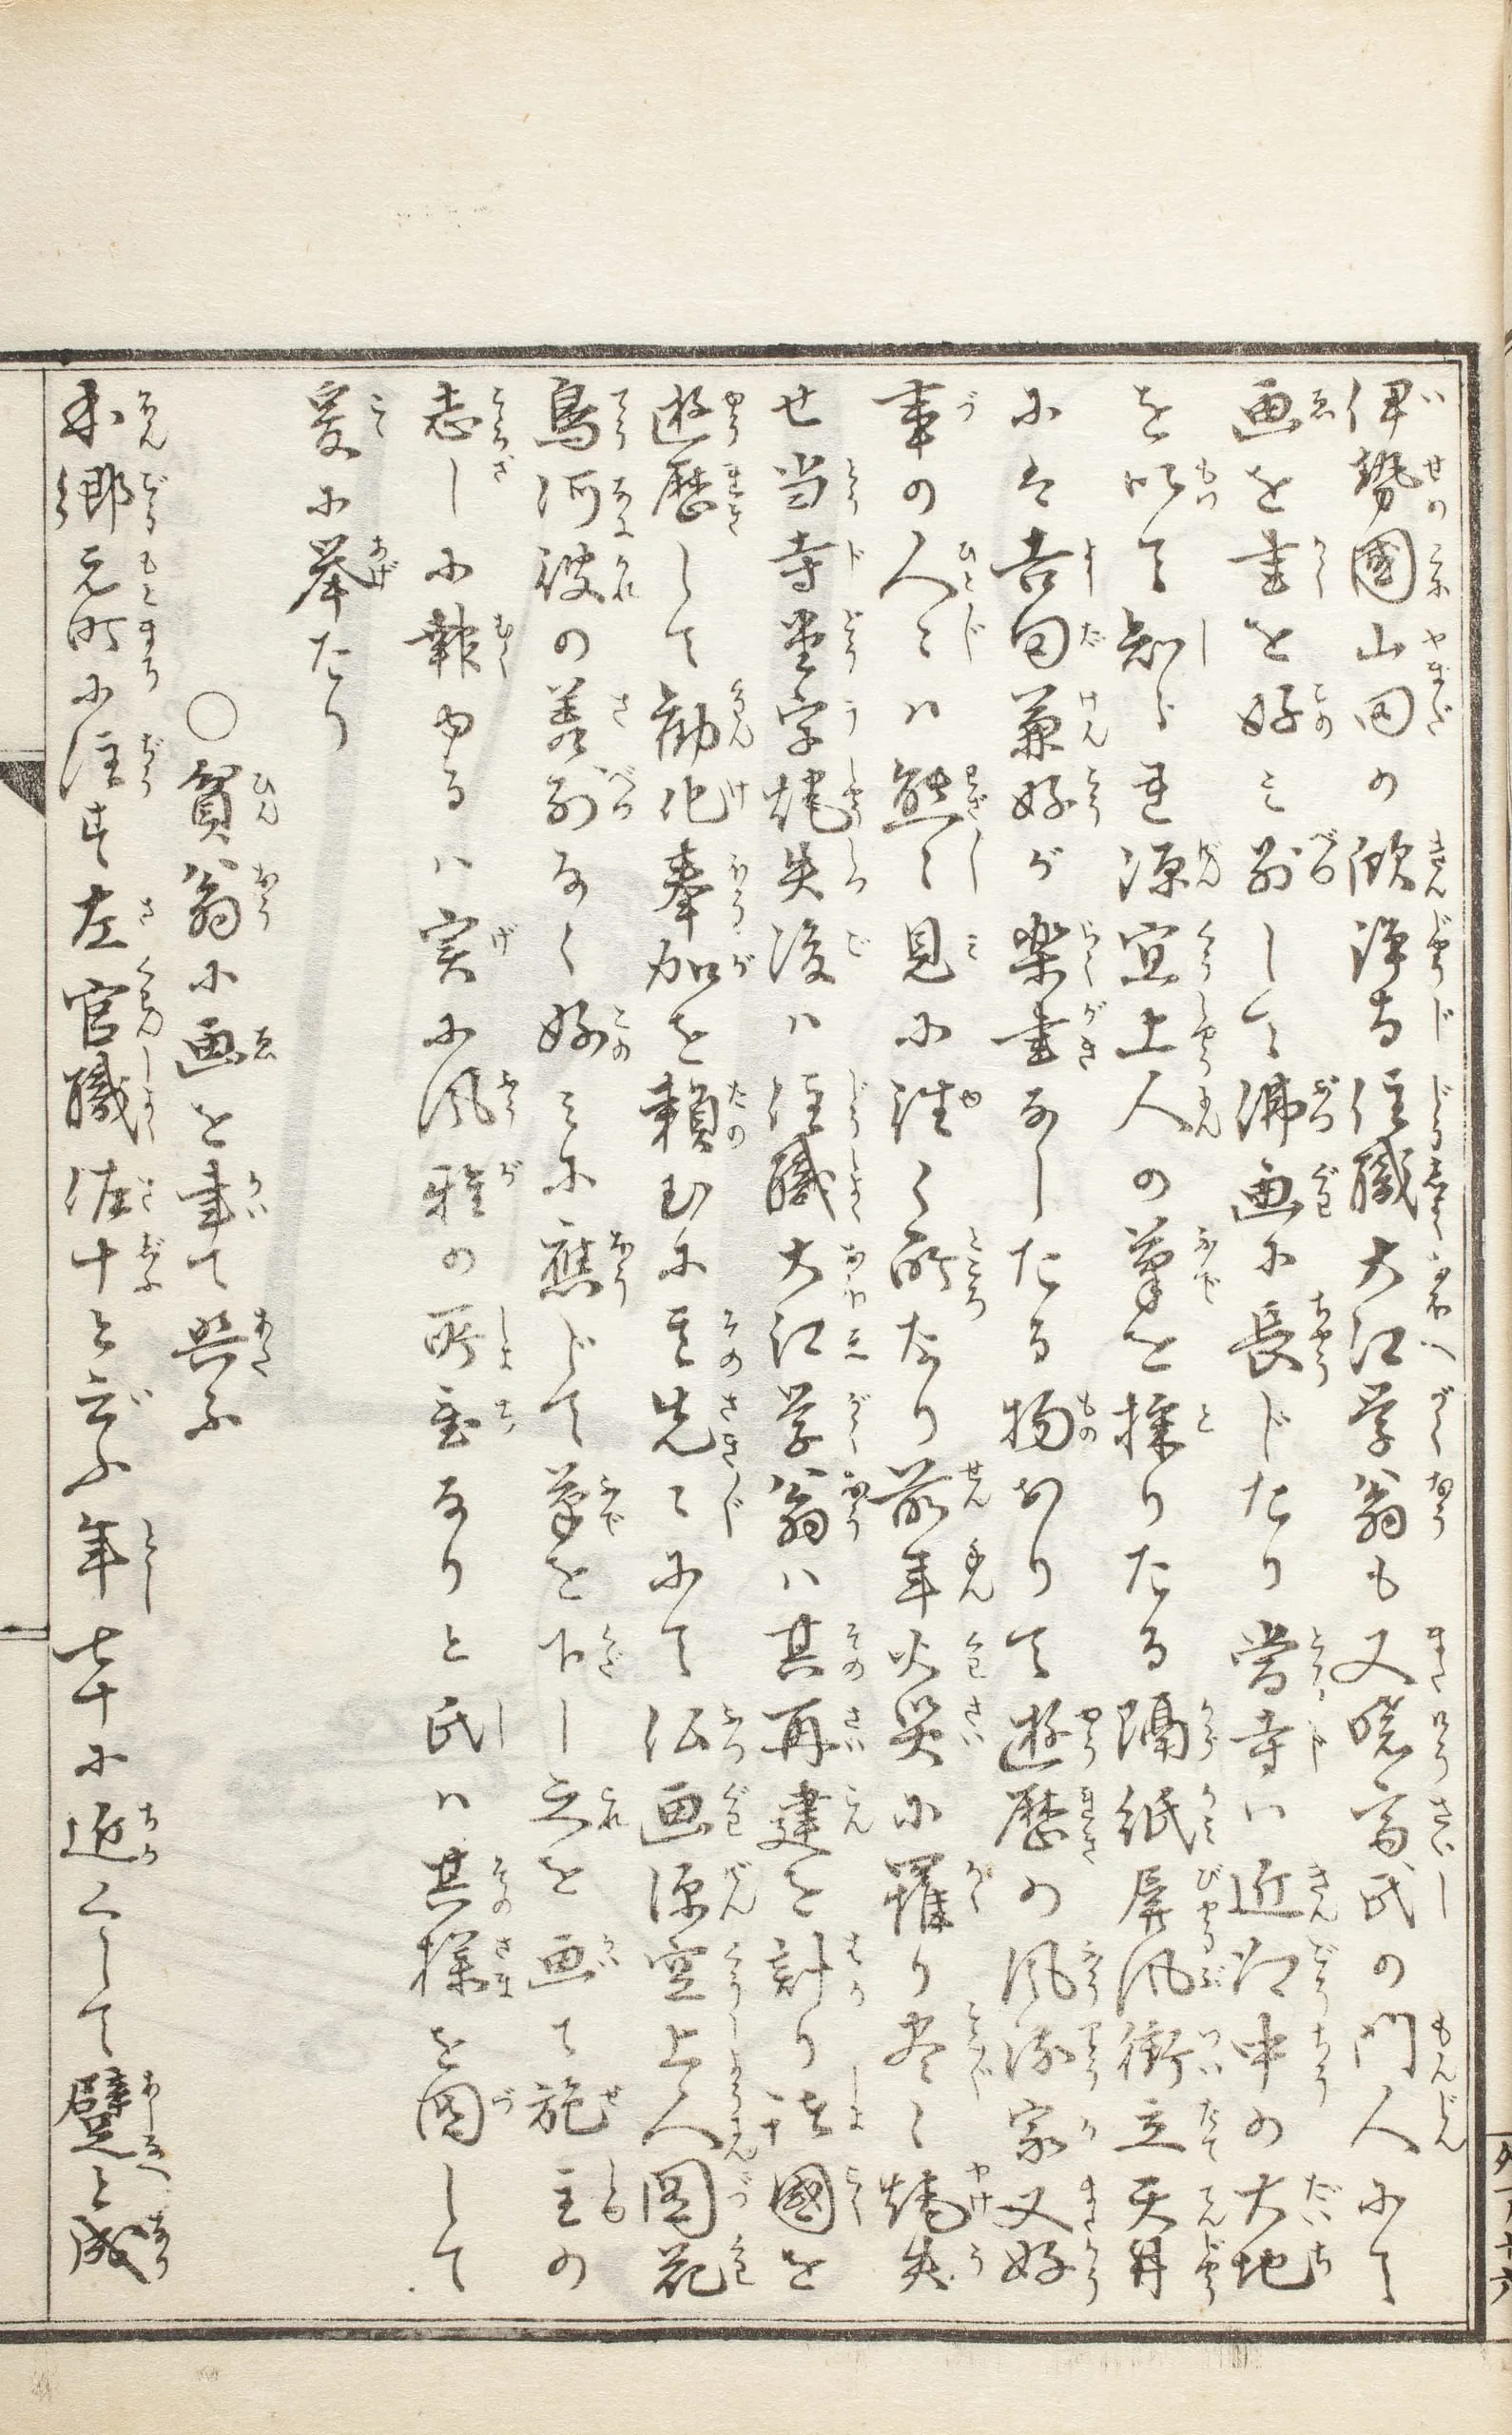 伊勢國山田の欣浄寺住職大江学翁も又暁斎氏の門人にて
画を書を好み別して沸画に長じたり當寺ハ近江中の大地
を以て知られ源空上人の筆を採りたる隔紙屏風衝立天井
にハ吉田兼好が楽書なしたる物ありて遊歴の風流家又好
事の人々ハ態々見に往く所なり前年火災に罹り尽く焼失
せ当寺堂宇焼失後ハ住職大江学翁ハ其再建を計り諸國を
遊歴して勧化奉加を頼むに其先々にて仏画源空上人図花
鳥何彼の差別なく好みに應じて筆を下し之を画て施主の
志しに報ゆるハ実に風雅の所置なりと氏ハ其様を図して
爰に挙たり
○貧翁に画を画て與ふ
本郷元町に住す左官職佐十と云ふ年七十に近くして躄と成